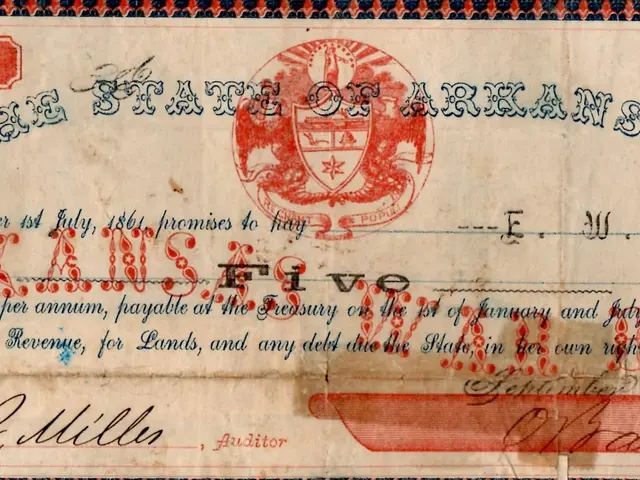 HE STATE OF ARKANS
REGNANT POPULI
r 1st July, 1861, promises to pay ---E. W.
KANSAS WAR
Five
per annum, payable at the Treasury on the 1st of January and July
Revenue, for Lands, and any debt due the State, in her own righ
September
Miller, Auditor